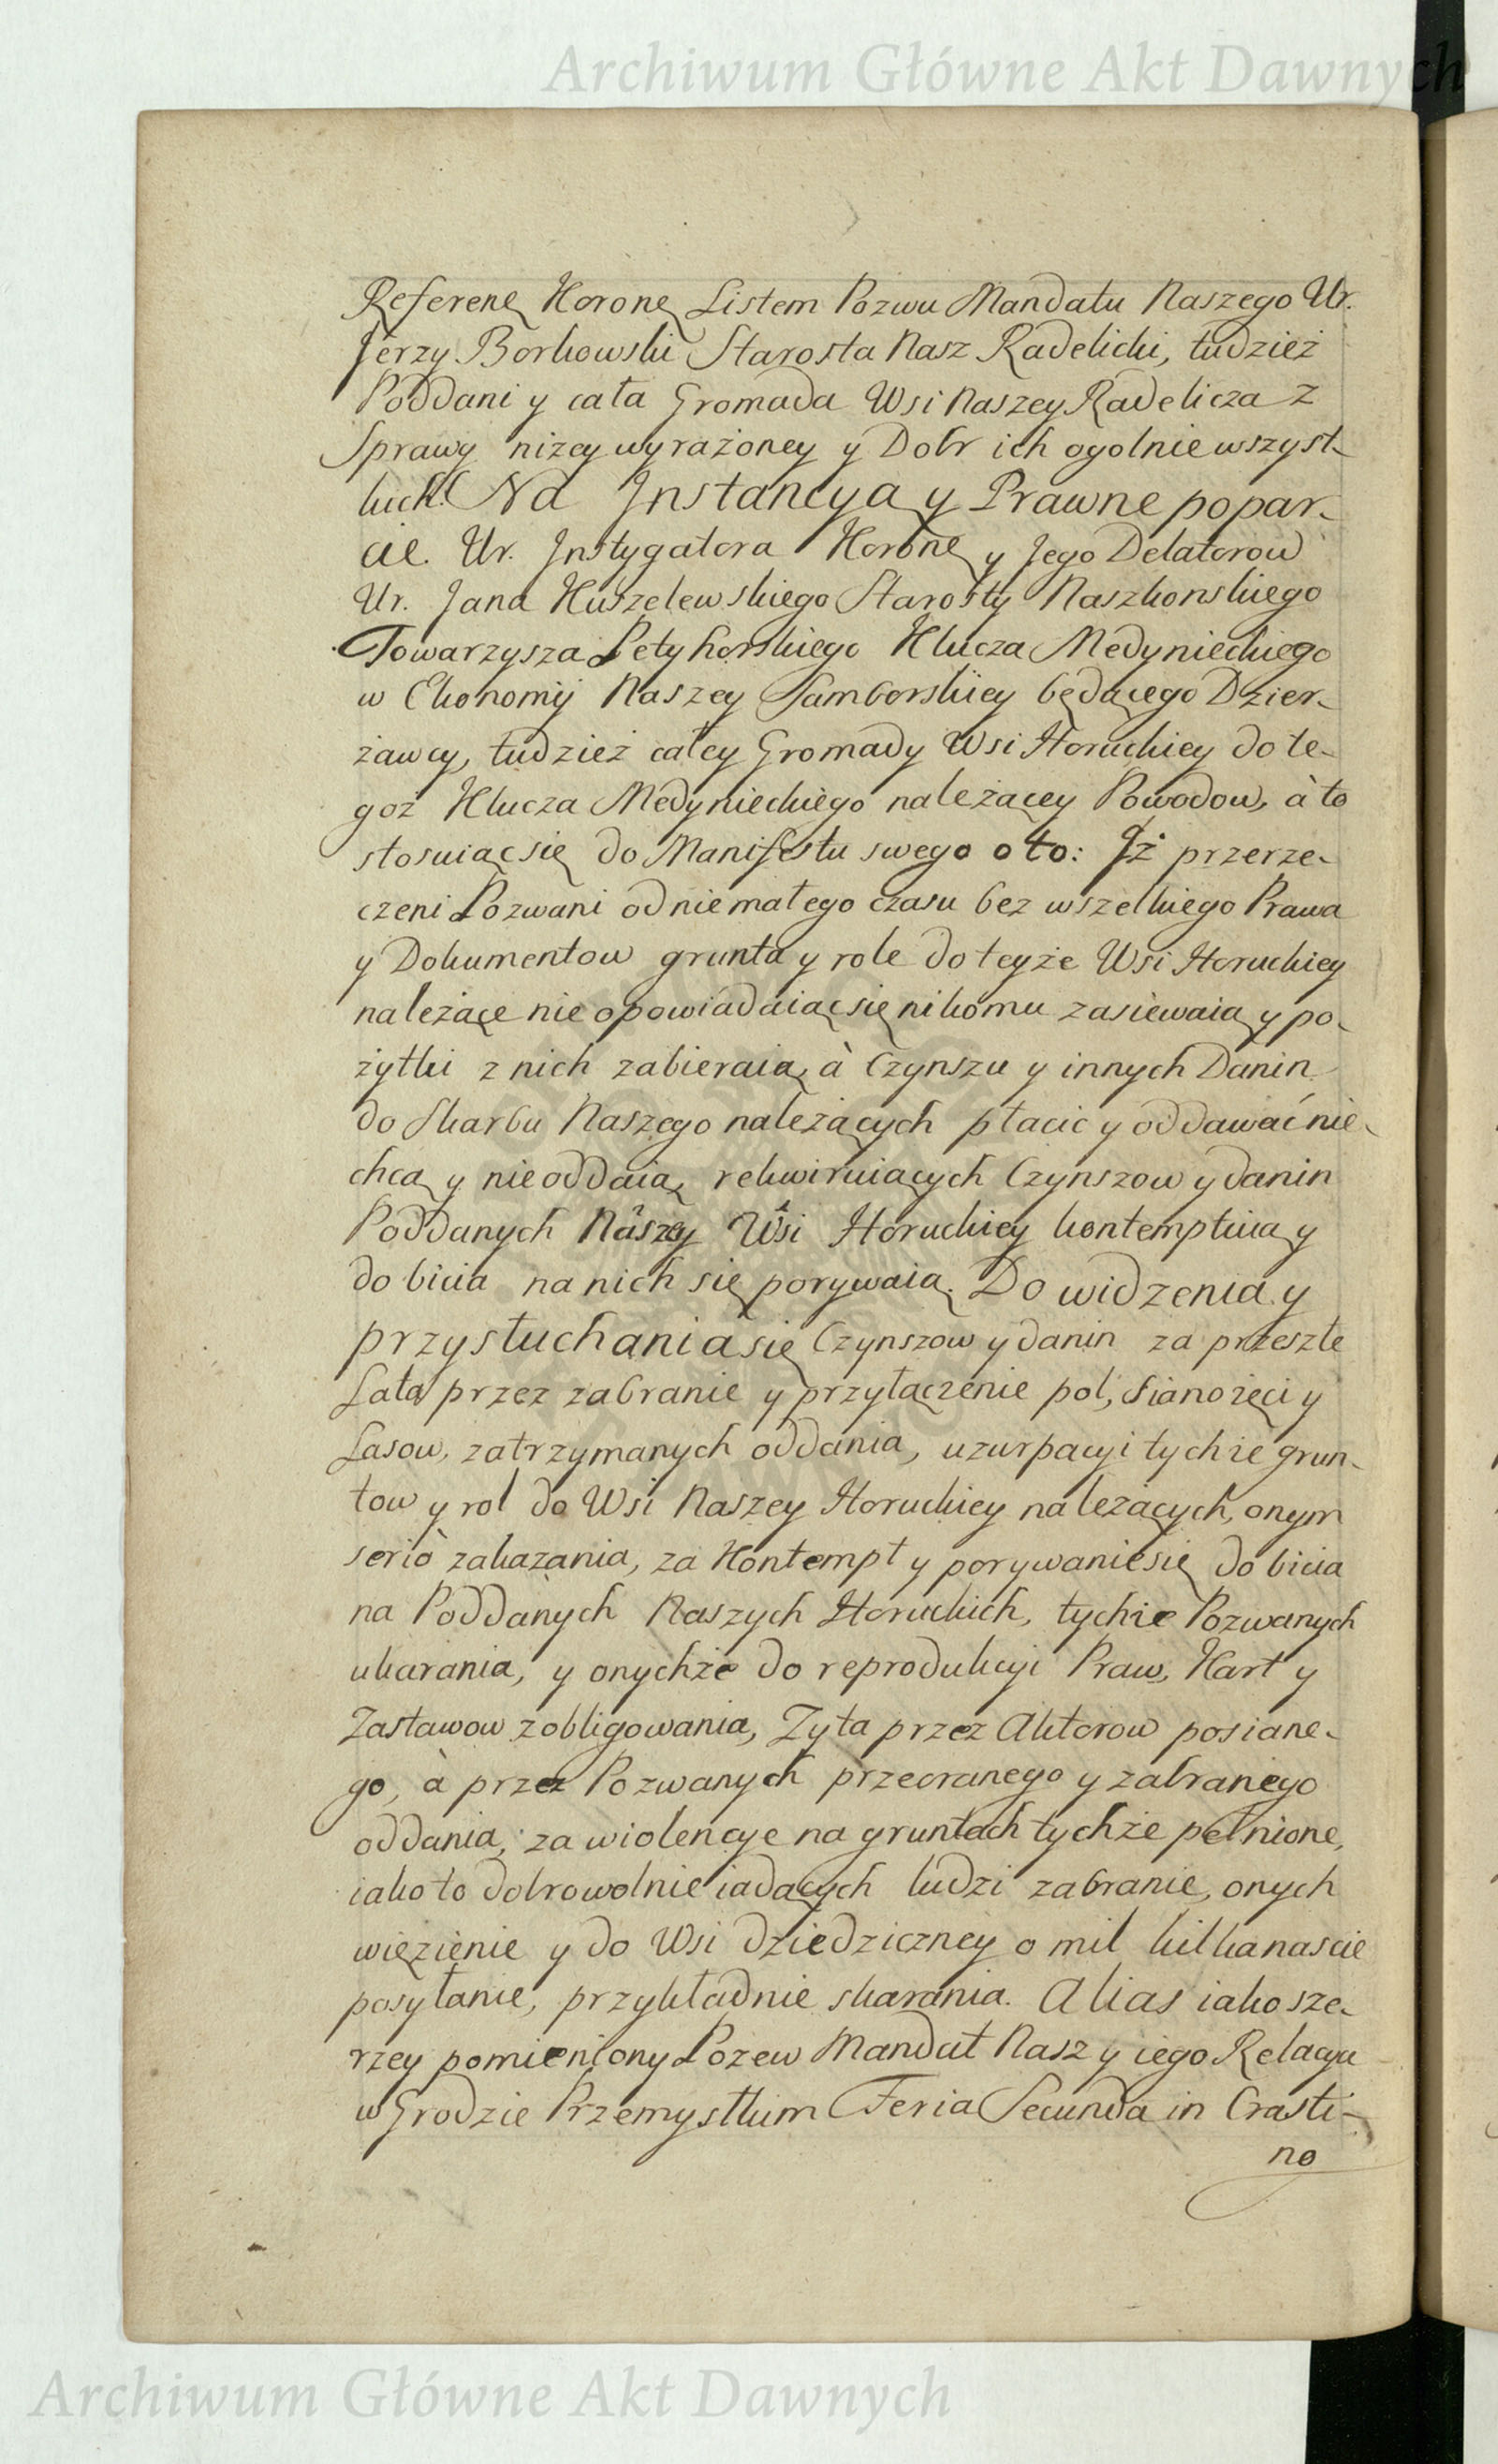 Archiwum Główne Akt Dawnych
Referenę Koronę Listem Pozwu Mandatu Naszego Ur.
Jerzy Borkowski Starosta Nasz Radelicki, tudzież
Poddani y cała Gromada Wsi Naszey Radelicza z
Sprawy niżey wyrażoney y Dobr ich ogolnie wszyst-
kich. Na Jnstancyą y Prawne popar-
cie Ur. Jnstygatora Koronę y Jego Delatorow
Ur. Jana Kuszelewskiego Starosty Naszkonskiego
Towarzysza Petyhorskiego Klucza Medynieckiego
w Ekonomij Naszey Samborskiey będącego Dzier-
żawcy, tudzież całey Gromady Wsi Horuckiey do te-
goż Klucza Medynieckiego należącey Powodow, à to
stosuiąc się do Manifestu swego o to: Jż przerze-
czeni Pozwani od niemałego czasu bez wszelkiego Prawa
y Dokumentow grunta y role do teyże Wsi Horuckiey
należące nie opowiadaiąc się nikomu zasiewaią y po-
żytki z nich zabieraią, à Czynszu y innych Danin
do Skarbu Naszego należących płacić y oddawać nie
chcą y nie oddaią, rekwiruiących Czynszow y danin
Poddanych Naszey Wsi Horuckiey kontemptuią y
do bicia na nich się porywaią. Do widzenia y
przysłuchania się Czynszow y danin za przeszłe
Lata przez zabranie y przyłączenie pol, sianożęci y
Lasow, zatrzymanych oddania, uzurpacyi tychże grun-
tow y rol do Wsi Naszey Horuckiey należących, onym
seriò zakazania, za Kontempt y porywanie się do bicia
na Poddanych Naszych Horuckich, tychże Pozwanych
ukarania, y onychże do reprodukcyi Praw, Kart y
Zastawow zobligowania, Zyta przez Aktorow posiane-
go, à przez Pozwanych przeoranego y zabranego
oddania, za wiolencye na gruntach tychże pełnione,
iako to dobrowolnie iadących ludzi zabranie, onych
więzienie y do Wsi dziedziczney o mil kilkanascie
posyłanie, przykładnie skarania. Alias iako sze-
rzey pomieniony Pozew Mandat Nasz y iego Relacya
w Grodzie Przemyslkim Feria Secunda in Crasti-
no
Archiwum Główne Akt Dawnych